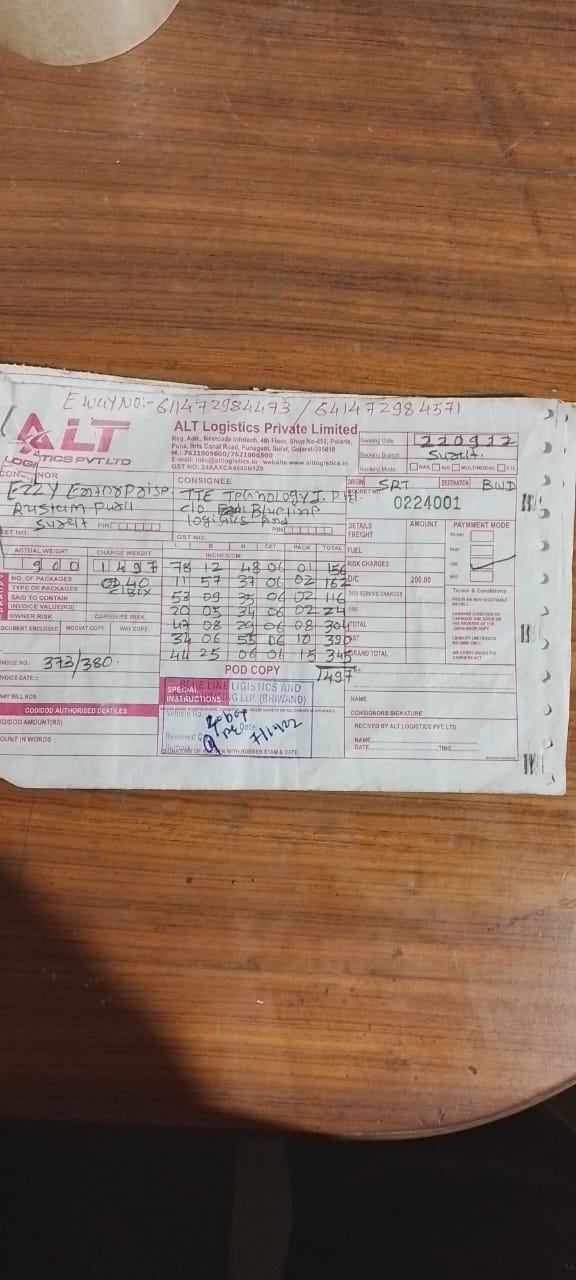 E WAY NO:- 611472984473 / 641472984571
ALT
LOGISTICS PVT LTD
ALT Logistics Private Limited
Reg. Add., Nestcode Infotech, 4th Floor, Shop No-453, Polaris,
Puna, Brts Canal Road, Punagam, Surat, Gujarat-395010
M.: 7621009600/7621006500
E-mail: info@altlogistics.in website www.altlogistics.in
GST NO: 24AAXCA4660N1Z0
Booking Date 220922
Booking Branch Surat.
Booking Mode RAIL AIR MULTIMODAL FTL
CONSIGNOR
EZZY Enterprise
Rustam Pura
Surat PIN
GST NO:
CONSIGNEE
TTE Technology I. Pvt.
C/O Blueline
logistics And
PIN
GST NO:
ORIGIN SRT DESTINATION BWD
DOCKET NO. 0224001
ACTUAL WEIGHT CHARGE WEIGHT
900 1497
NO. OF PACKAGES 40
TYPE OF PACKAGES C/Box
SAID TO CONTAIN
INVOICE VALUE(RS)
OWNER RISK CARRIERS RISK
DOCUMENT ENCLOSED MODVAT COPY WAY COPY
INVOICE NO.: 373/380.
INVOICE DATE.:
WAY BILL NOS.
COD/DOD AUTHORISED DEATILES
COD/DOD AMOUNT(RS)
AMOUNT IN WORDS
L B H CFT PACK TOTAL
INCHES/CM
78 12 48 06 01 156
11 57 37 06 02 162
53 09 35 06 02 116
20 05 34 06 02 24
47 08 29 06 08 304
34 06 55 06 10 390
44 25 06 06 15 345
1497
POD COPY
SPECIAL
INSTRUCTIONS
BLUE LINE LIGISTICS AND
LLP. (BHIWAND)
Vehicle No.
Date:
7/10/22
SIGNATURE OF RECEIVER WITH RUBBER STAM & DATE.
DETAILS AMOUNT PAYMMENT MODE
FREIGHT
RISK CHARGES
D/C 200.00
DOD SERVICE CHARGES
OSC
TOTAL
GST
GRAND TOTAL
RS.
TO PAY
PAID
TBB
Terms & Conditions
NAME
CONSIGNORS SIGNATURE
RECIVED BY ALT LOGISTICS PVT. LTD.
NAME
DATE TIME